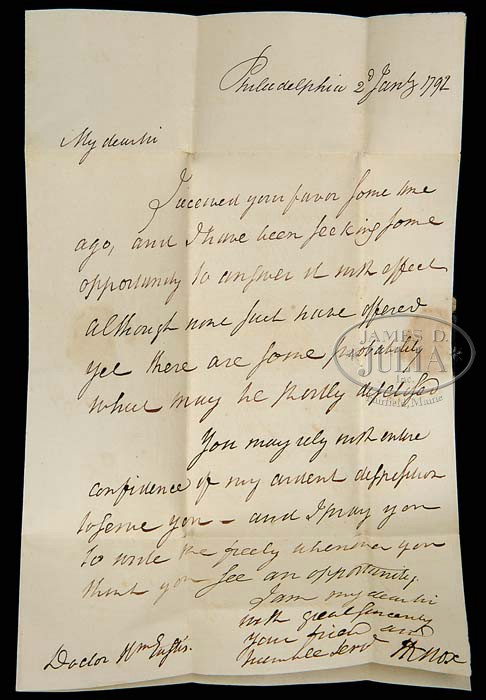 Philadelphia 2d Jany 1792
My dear sir
I received your favor some time
ago, and I have been seeking some
opportunity to answer it with effect
although none such have offered
yet there are some probability
what may be partly disclosed
You may rely with entire
confidence of my ardent disposition
to serve you – and I pray you
to write me freely whenever you
think you see an opportunity.
I am my dear sir
with great sincerity
your friend and
humble serv
HKnox
Doctor Wm Eustis.
JAMES D.
JULIA
Inc.
Fairfield, Maine